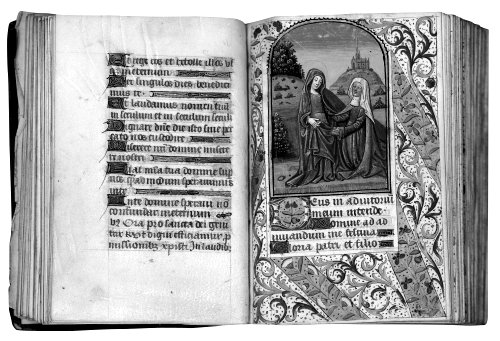 Et rege eos et extolle illos usq
in eternum
Per singulos dies benedici
mus te
Et laudamus nomen tuum
in seculum et in seculum seculi
Dignare dñe die isto sine pec
cato nos custodire
Miserere nri domine misere
re nostri
Fiat mīa tua domine sup
nos quēadmodum speravimus
in te
In te domine speravi non
confundar in eternum
Ora pro nobis sancta dei geni
trix Ut digni efficiamur p
missionibus xpisti In laudib
Deus in adiutoriũ
meum intende
Domine ad ad
iuvandum me festina
Gloria patri et filio